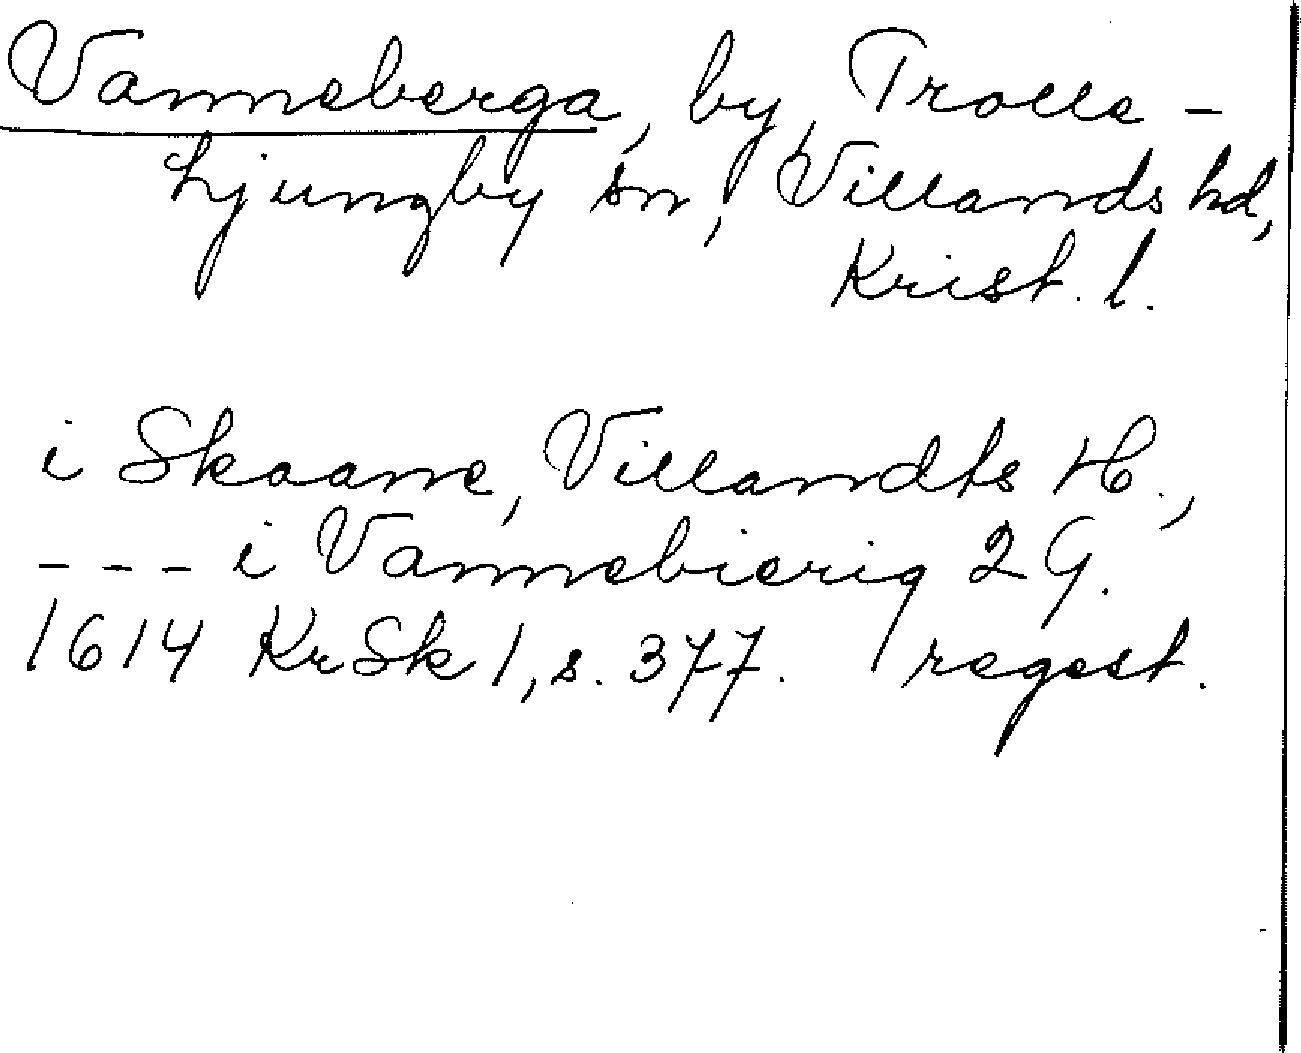 Vanneberga, by, Trolle-
Ljungby sn, Villands hd,
Krist. l.
i Skaane, Villandts H.,
--- i Vannebierig 2 G.
1614 KrSk 1, s. 377. regest.